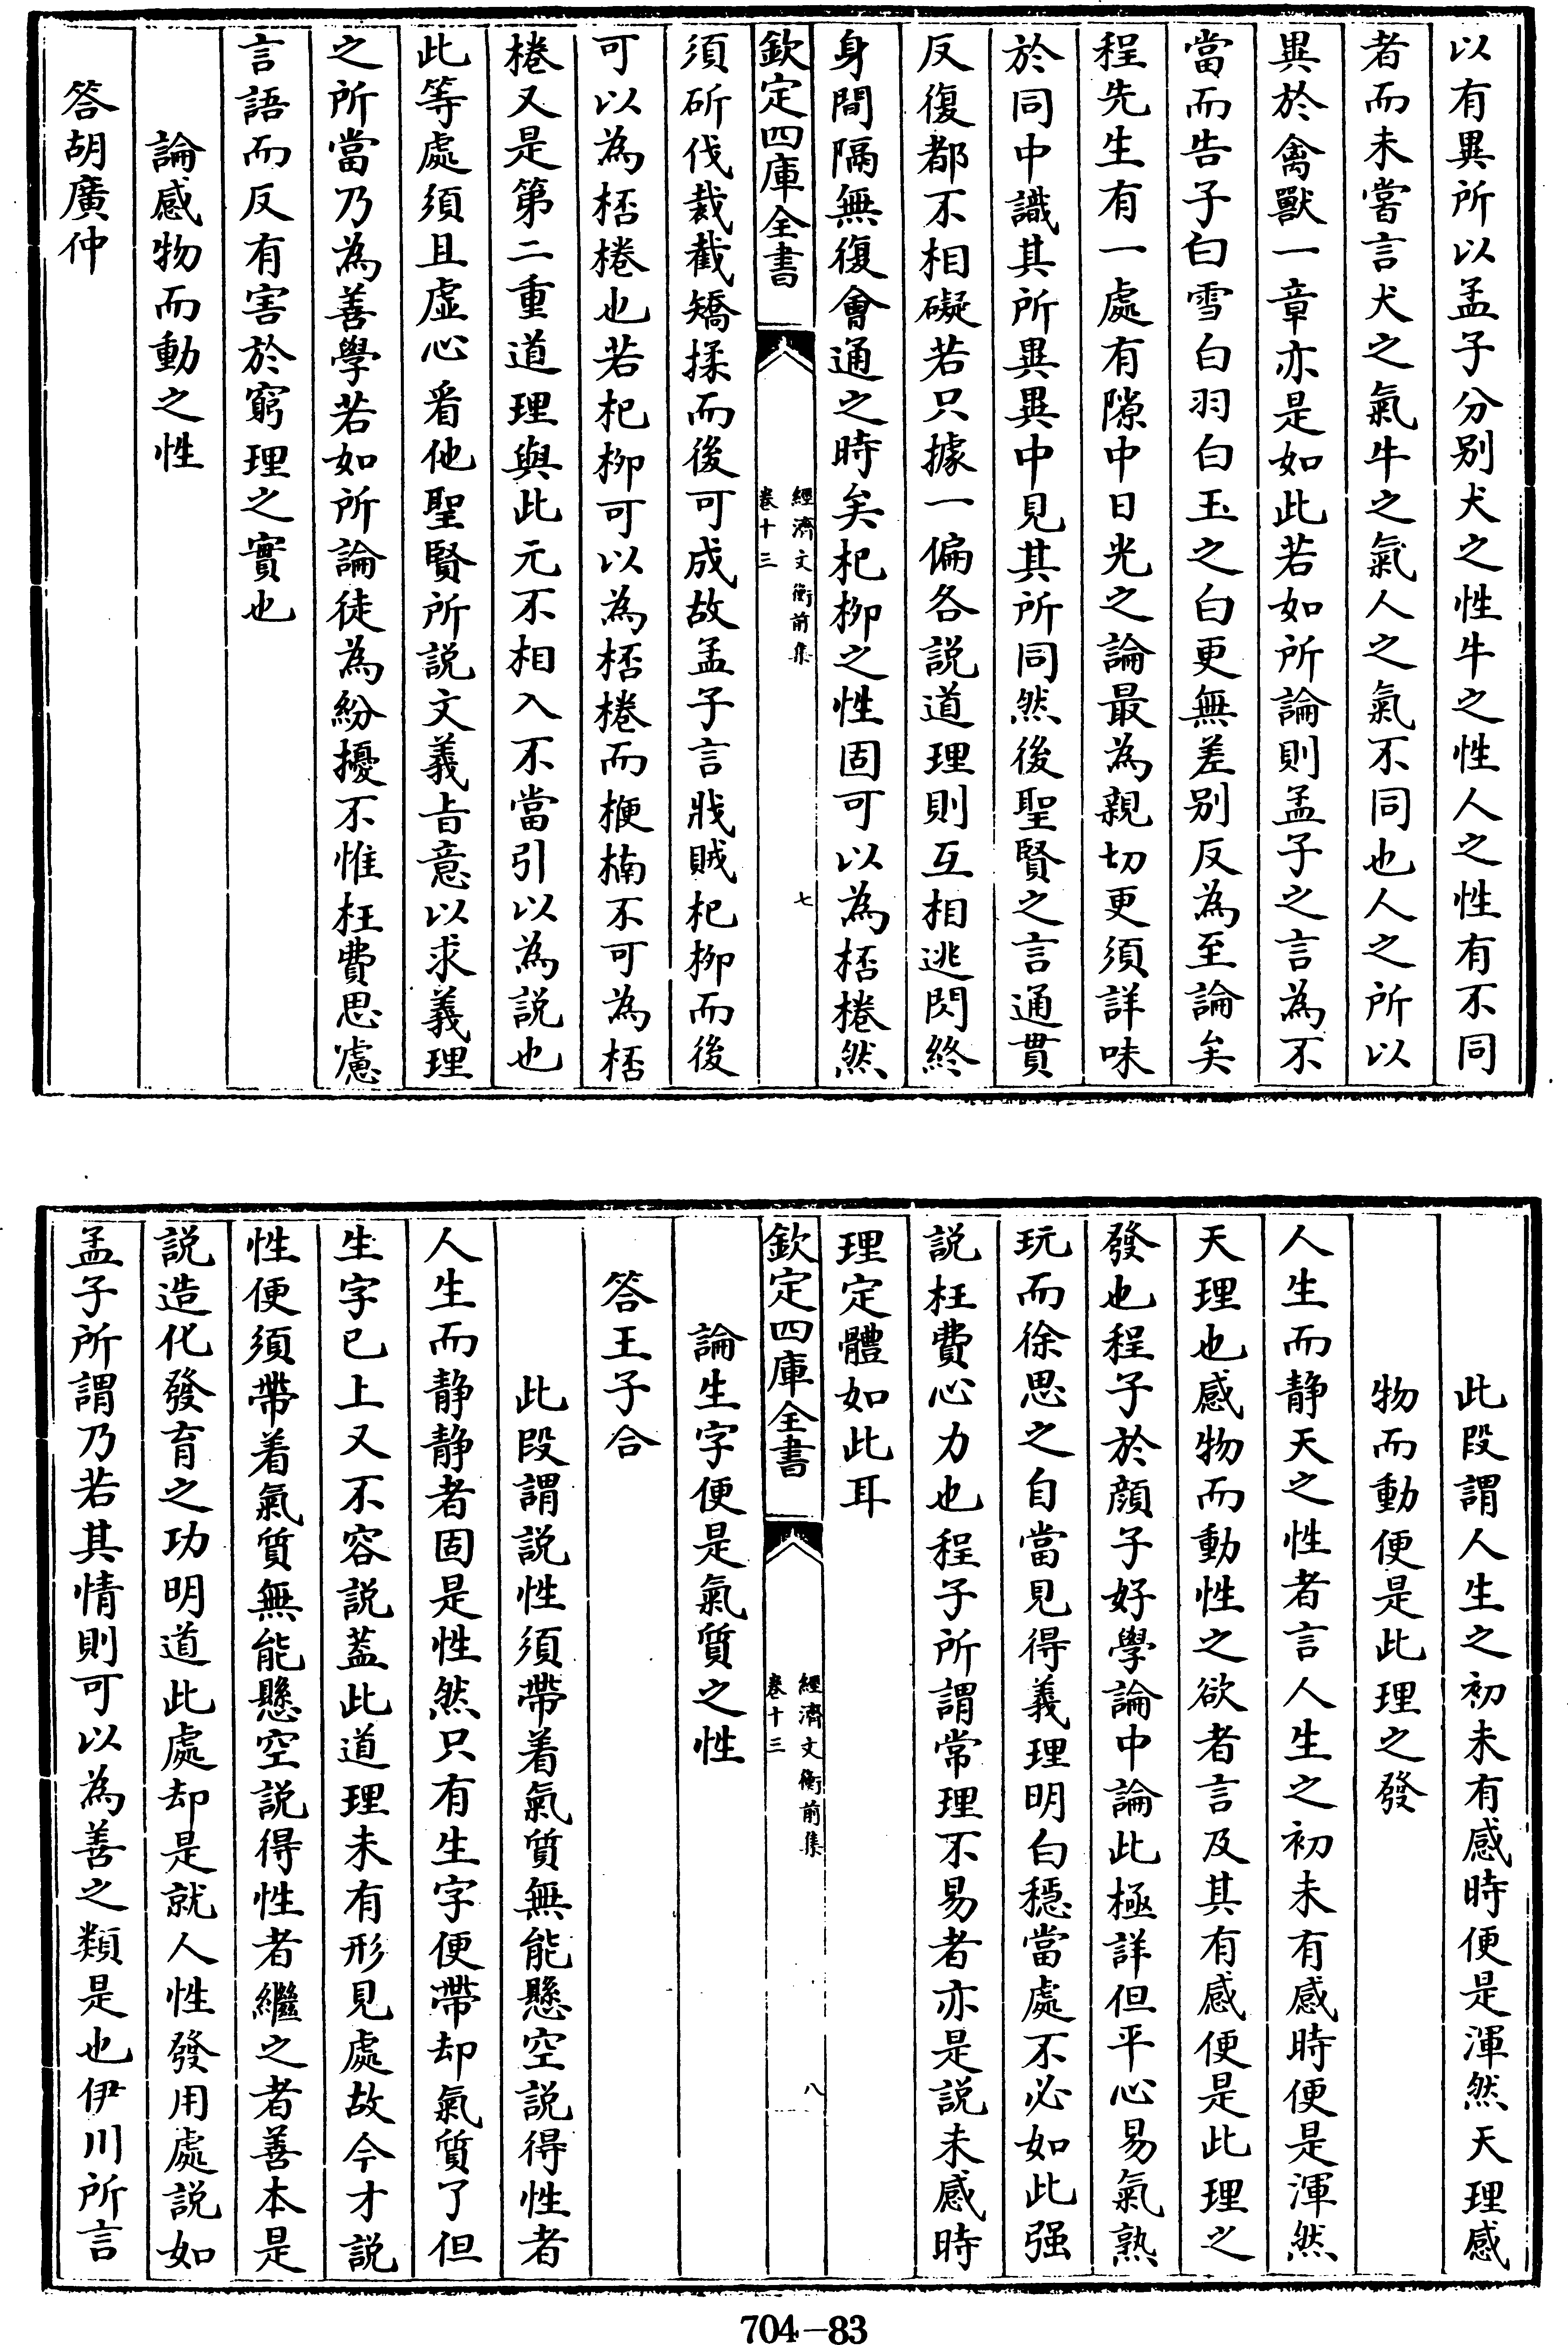 以有異所以孟子分别犬之性牛之性人之性有不同
者而未嘗言犬之氣牛之氣人之氣不同也人之所以
異於禽獸一章亦是如此若如所論則孟子之言為不
當而告子白雪白羽白玉之白更無差别反為至論矣
程先生有一處有隙中日光之論最為親切更須詳味
於同中識其所異異中見其所同然後聖賢之言通貫
反復都不相礙若只據一偏各説道理則互相逃閃終
身間隔無復會通之時矣杞栁之性固可以為桮棬然
欽定四庫全書
經濟文衡前集
卷十三
七
須斫伐裁截矯揉而後可成故孟子言戕賊杞栁而後
可以為桮棬也若杞栁可以為桮棬而楩楠不可為桮
棬又是第二重道理與此元不相入不當引以為説也
此等處須且虚心看他聖賢所説文義㫖意以求義理
之所當乃為善學若如所論徒為紛擾不惟枉費思慮
言語而反有害於窮理之實也
論感物而動之性
答胡廣仲
此段謂人生之初未有感時便是渾然天理感
物而動便是此理之發
人生而静天之性者言人生之初未有感時便是渾然
天理也感物而動性之欲者言及其有感便是此理之
發也程子於顔子好學論中論此極詳但平心易氣熟
玩而徐思之自當見得義理明白穩當處不必如此强
説枉費心力也程子所謂常理不易者亦是説未感時
理定體如此耳
欽定四庫全書
經濟文衡前集
卷十三
八
論生字便是氣質之性
答王子合
此段謂説性須帶着氣質無能懸空説得性者
人生而静静者固是性然只有生字便帶却氣質了但
生字已上又不容説蓋此道理未有形見處故今才説
性便須帶着氣質無能懸空説得性者繼之者善本是
説造化發育之功明道此處却是就人性發用處説如
孟子所謂乃若其情則可以為善之類是也伊川所言
704-83